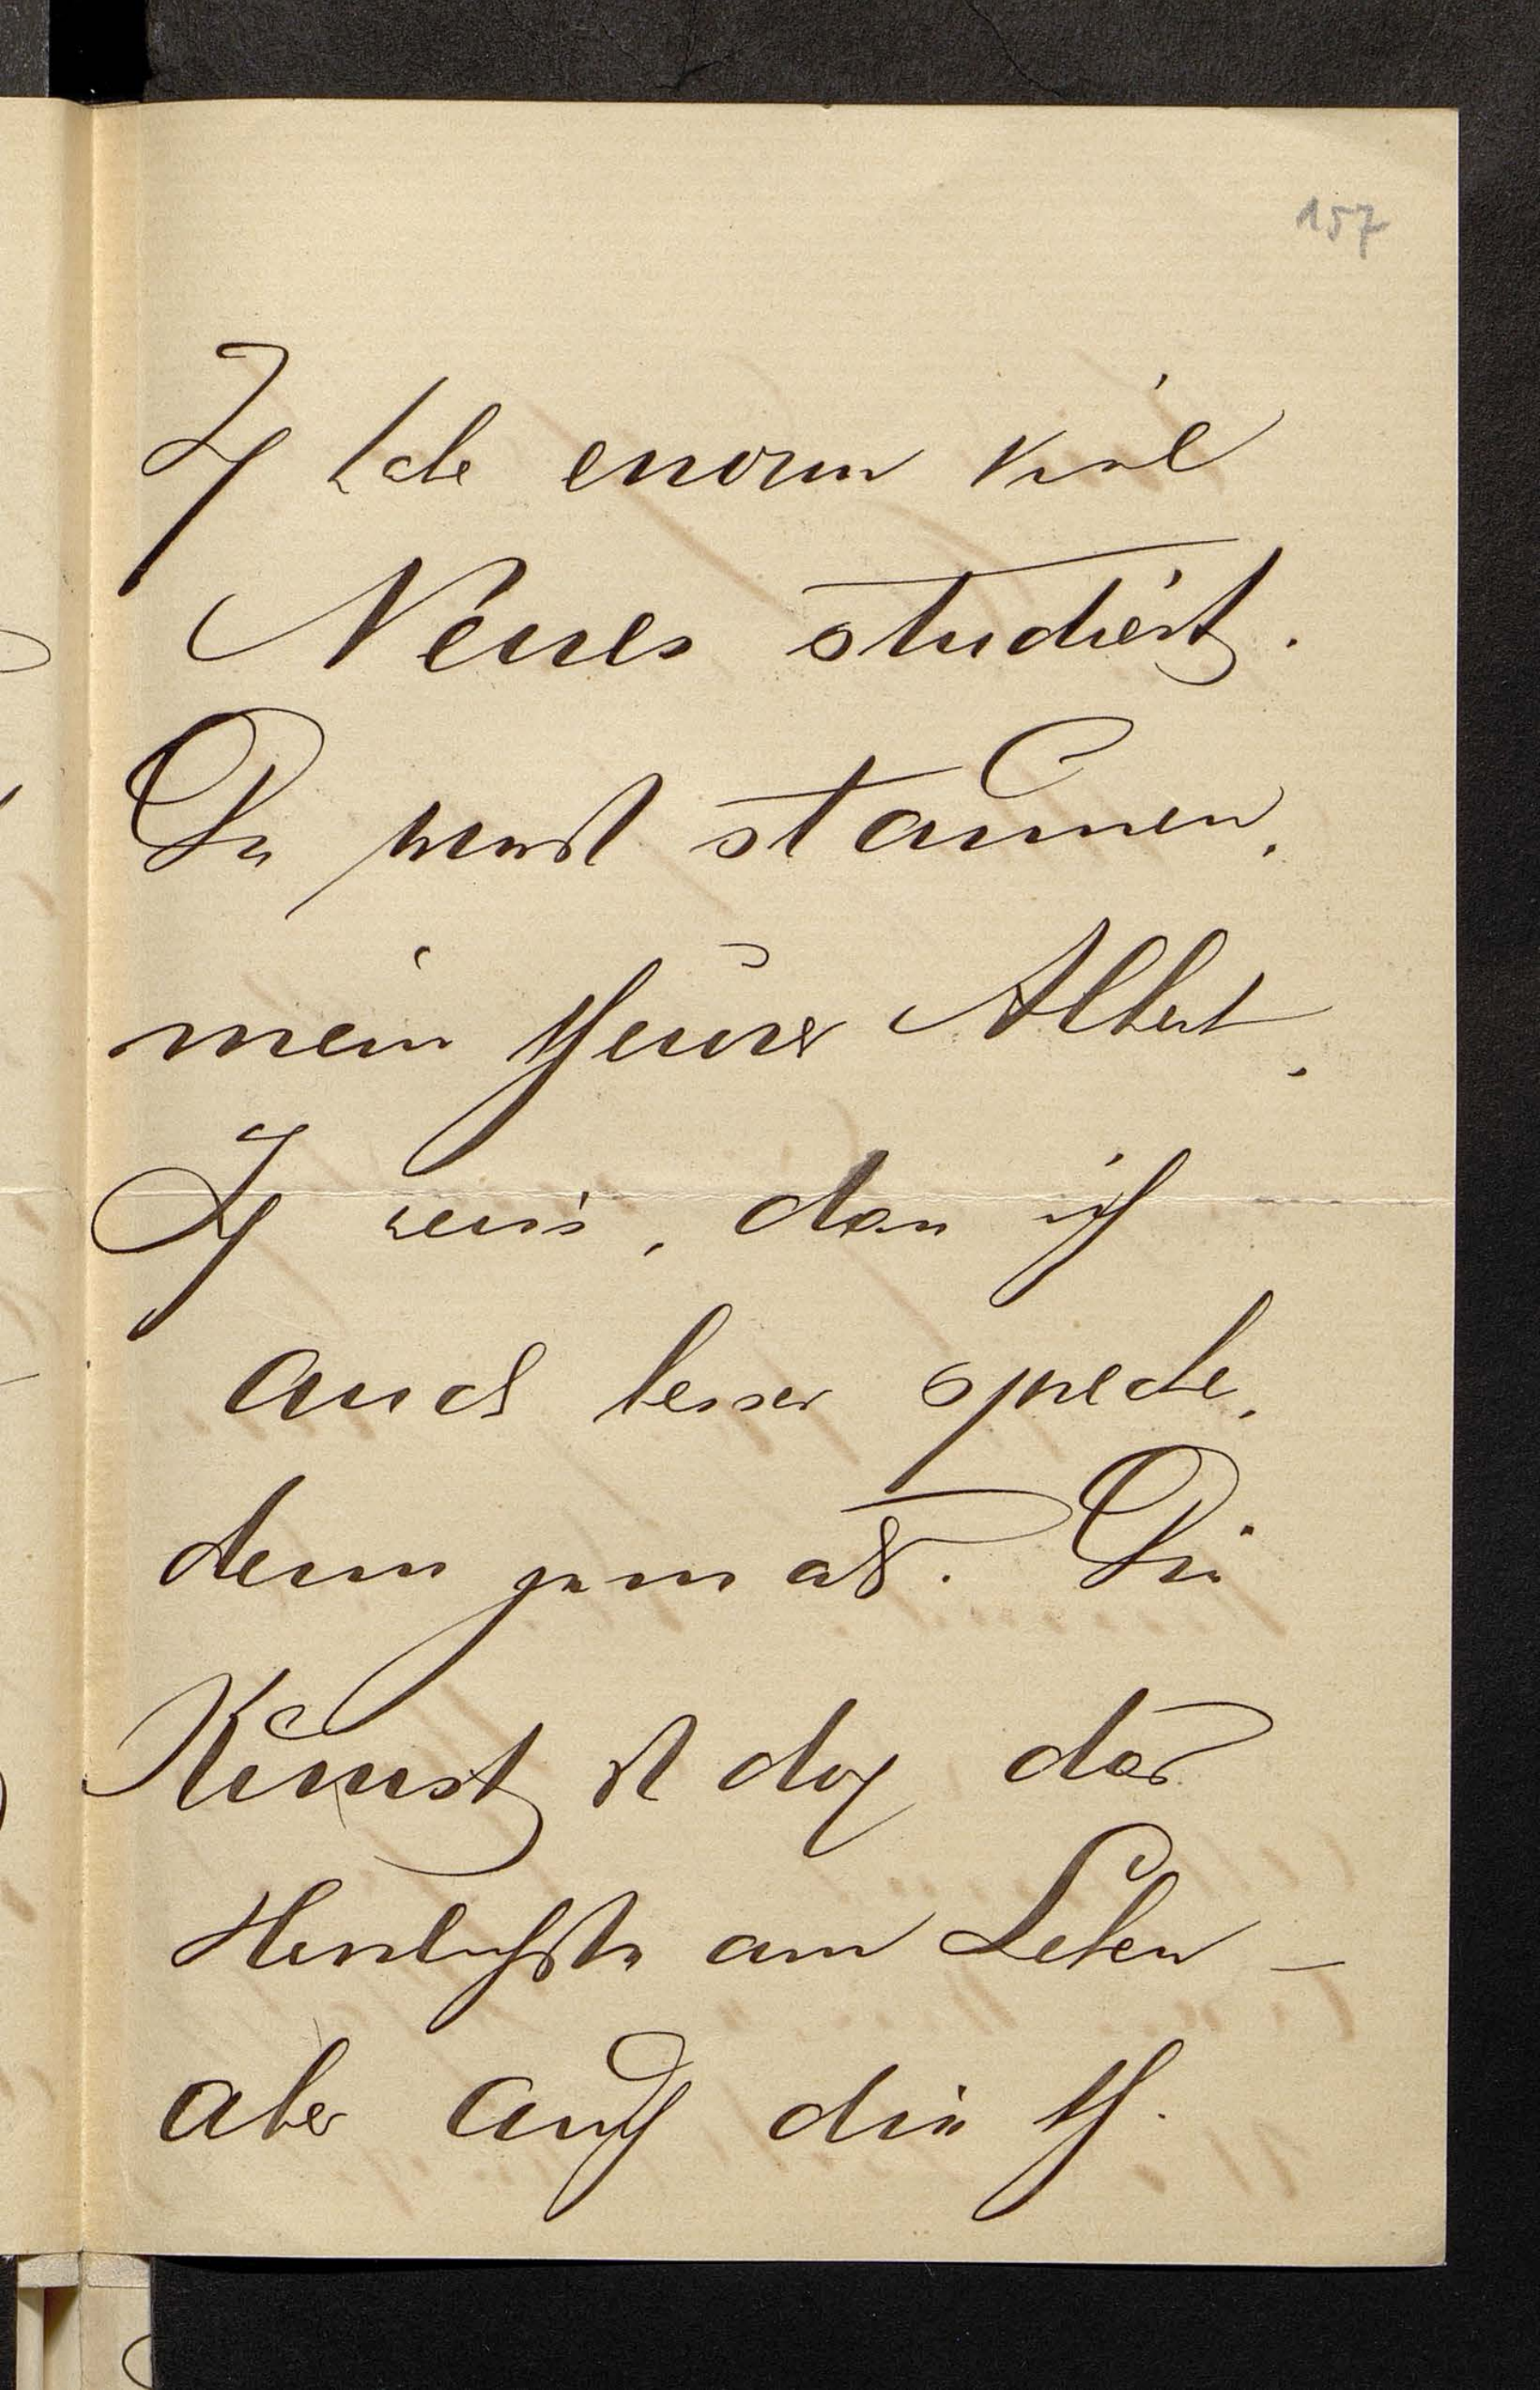 157
Ich habe enorm viel
Neues studiert.
Du wirst staunen,
mein theurer Albert.
Ich weiss, dass ich
auch besser spreche,
denn jemals. Die
Kunst ist doch das
Herrlichste am Leben –
aber auch die th.